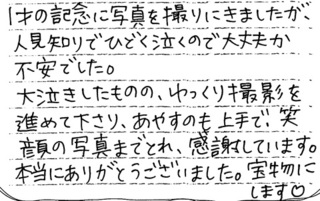 1才の記念に写真を撮りにきましたが、
人見知りでひどく泣くので大丈夫か
不安でした。
大泣きしたものの、ゆっくり撮影を
進めて下さり、あやすのも上手で、笑
顔の写真までとれ、感謝しています。
本当にありがとうございました。宝物に
します♡